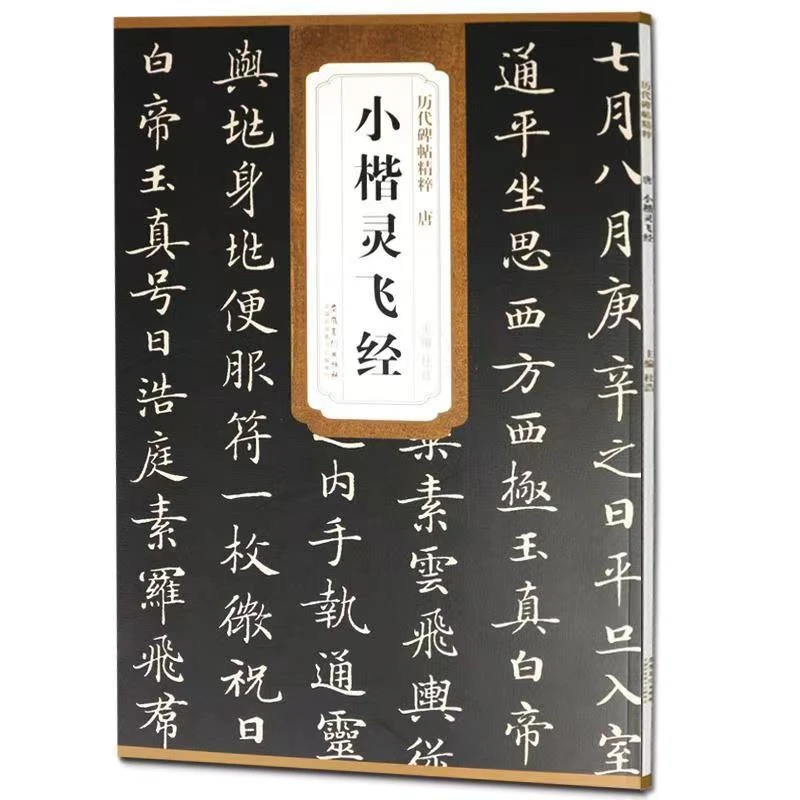 七月八月庚辛之日平旦入室
通平坐思西方西極玉真白帝
素雲飛輿從
内手執通靈
與兆身兆便服符一枚微祝曰
白帝玉真号曰浩庭素羅飛帬
历代碑帖精粹 唐
小楷灵飞经
安徽美术出版社
历代碑帖精粹 唐 小楷灵飞经 主编 杜浩